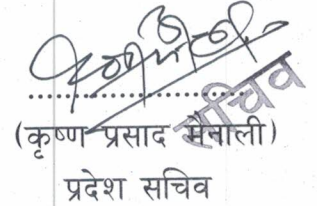 सचिव
(कृष्ण प्रसाद मैनाली)
प्रदेश सचिव